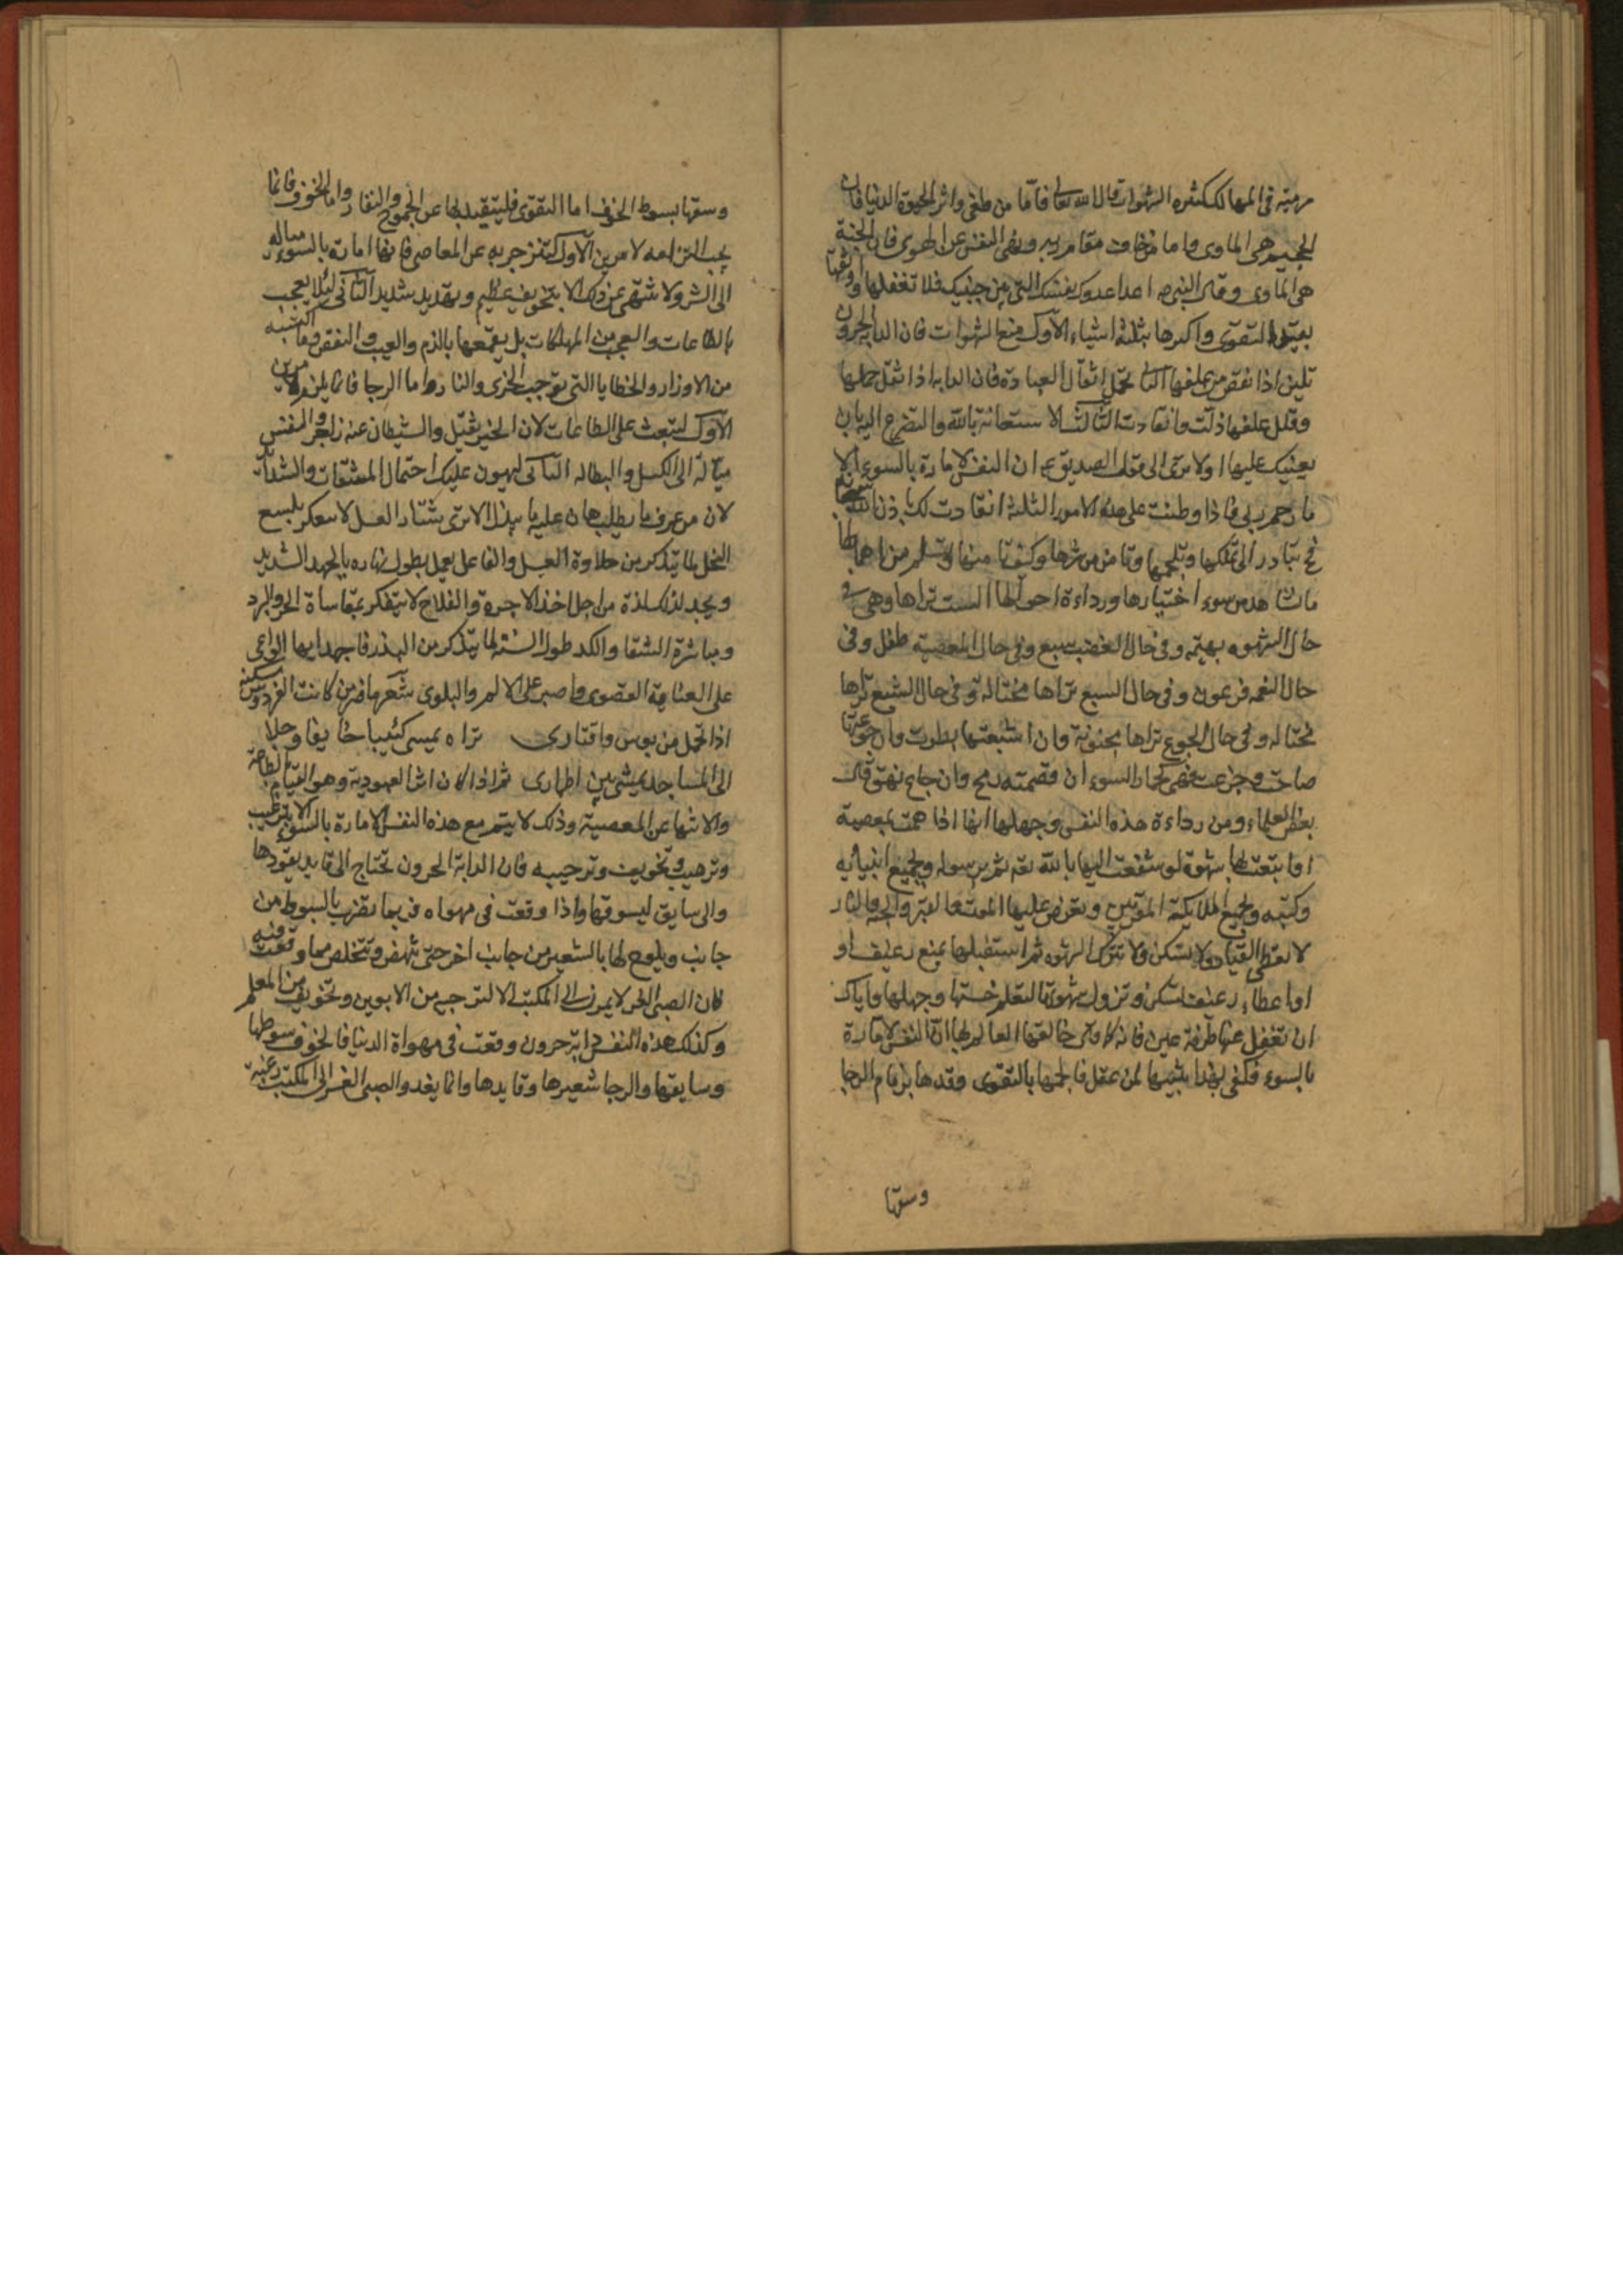 مرمية في المهالك لكثره الشهوات قال الله تعالى فاما من طغى واثر الحيوة الدنيا فان
الجحيم هي الماوى واما من خاف مقام ربه ونهى النفس عن الهوى فان الجنة
هي الماوى وقال النبي ص اعدا عدوك نفسك التي بين جنبيك فلا تغفلها واوثقها
بقيد التقوى واكسرها بثلثة اشياء الاول منع الشهوات فان الدابة الحرون
تلين اذا نقص من علفها الثاني تحمل اثقال العبادة فان الدابه اذا ثقل حملها
وقلل علفها ذلت وانقادت الثالث الاستعانة بالله والتضرع اليه بان
يعينك عليها اولا ترى الى قول الصديق ع ان النفس لامارة بالسوء الا
ما رحم ربي فاذا وطنت على هذه الامور الثلثة انقادت لك باذن الله
فح تبادر الى تملكها وتلجمها وتامن من شرها وكيف تامن منها او تسلم من اهمالها
مات شاهد من سوء اختيارها ورداءة احوالها الست تراها وهي في
حال الشهوه بهيمه وفي حال الغضب سبع وفي حال المعصية طفل وفي
حال النعمه فرعون وفي حال السبع تراها مختالة وفي حال الشبع تراها
مختاله وفي حال الجوع تراها مجنونة وان اشبعتها بطرت وان جوعتها
صاحت وجزعت فهي كحمار السوء ان قضمته رمح وان جاع نهق قال
بعض العلماء ومن رداءة هذه النفس وجهلها انها اذا همت بمعصية
او انبعثت لها شهوة لو شفعت اليها بالله تعه ثم برسوله وبجميع انبيائه
وكتبه وبجميع الملايكة المقربين وتعرض عليها الموت والقبر والجنة والنار
لا تعطى القياد ولا تسكن ولا تترك الشهوه ثم استقبلها بمنع رغيف او
او اعطاء رغيف تسكن وتزول شهوتها لتعلم خستها وجهلها واياك
ان تغفل عنها طرفة عين فانه كما قال خالقها العالم بها ان النفس لامارة
بالسوء فكفى بهذا تنبيها لمن عقل فالجمها بالتقوى وقدها بزمام الرجا
وسقها
وسقها بسوط الخوف اما التقوى فليتقيد بها عن الجموح والنفار واما الخوف فانما
يجب التزامه لامرين الاول لتنزجر به عن المعاصي فانها امارة بالسوء مياله
الى الشر ولا تنتهى عن ذلك الا بتخويف عظيم وتهديد شديد الثاني لئلا يعجب
بالطاعات والعجب من المهلكات بل يقمعها بالذم والعيب والنقص وما اكتسبه
من الاوزار والخطايا التي توجب الخزى والنار واما الرجا فانما يلزم لامرين
الاول لتبعث على الطاعات لان الخير ثقيل والشيطان عنه زاجر والنفس
ميالة الى الكسل والبطاله الثاني ليهون عليك احتمال المشقات والشدائد
لان من عرف ما يطلب هان عليه ما يبذل الا ترى مشتار العسل لا يفكر بلسع
النحل لما يتذكر من حلاوة العسل والفاعل يعمل بطول نهاره بالجهد الشديد
ويجد لذلك لذة من اجل اخذ الاجرة والفلاح لا يتفكر بمقاساة الحر والبرد
ومباشرة الشقا والكد طول السنة لما يتذكر من البيدر فاجهد ايها الواعي
على العناية القصوى واصبر على الالم والبلوى شعر ما ضر من كانت الفردوس مسكنه
اذا تحمل من بوس واقتاري تراه يمسى كئيبا خايفا وجلا
الى المساجد يمشي بين اطماري ثم اذا كان انشا العبودية وهو القيام بالطاعة
والانتها عن المعصية وذلك لا يتم مع هذه النفس الامارة بالسوء الا بترغيب
وترهيب وتخويف وترجيبه فان الدابة الحرون تحتاج الى قايد يقودها
والى سايق ليسوقها واذا وقعت في مهواه فربما تضرب بالسوط من
جانب ويلوح لها بالشعير من جانب اخر حتى تنهض وتتخلص مما وقعت فيه
فان الصبى الغر لا يمر الى المكتب الا لترجيه من الابوين وتخويف من المعلم
وكذلك هذه النفس دابة حرون وقعت في مهواة الدنيا فالخوف سوطها
وسايقها والرجا شعيرها وقايدها وانما يغدو الصبى الغر الى المكتب رغبة